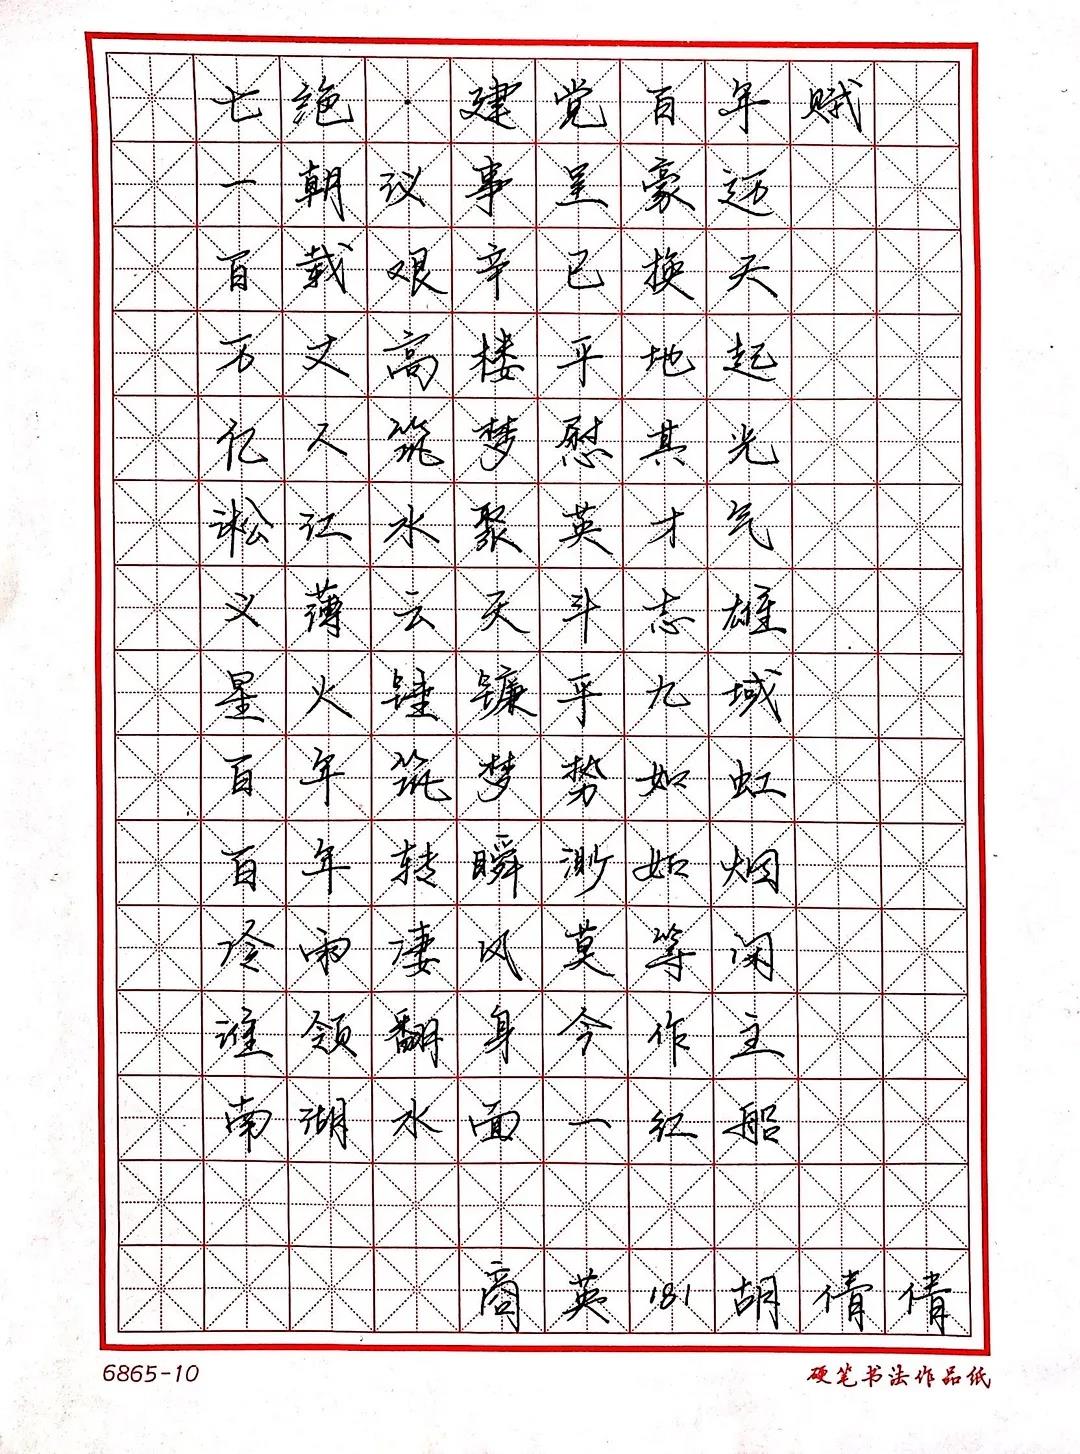 七绝·建党百年赋
一朝议事呈豪迈
百载艰辛已换天
万丈高楼平地起
亿人筑梦慰其光
淞江水聚英才气
义薄云天斗志雄
星火锤镰平九域
百年筑梦势如虹
百年转瞬渺如烟
冷雨凄风莫等闲
谁领翻身今作主
南湖水面一红船
商英181胡倩倩
6865-10
硬笔书法作品纸